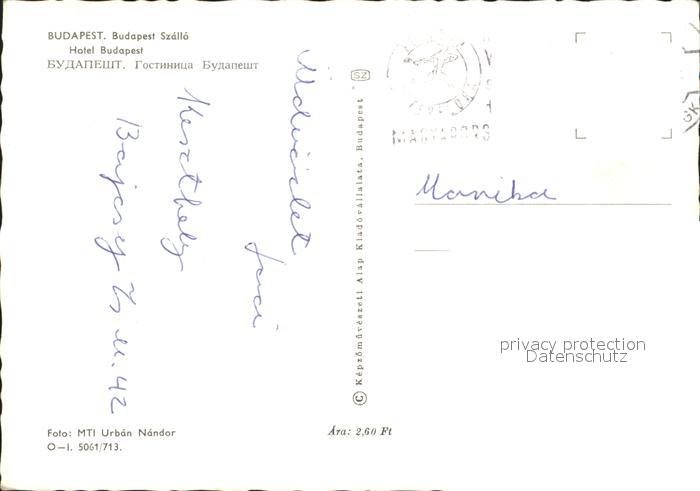 BUDAPEST. Budapest Szálló
Hotel Budapest
БУДАПЕШТ. Гостиница Будапешт
SZ
MAGYARORS
Üdvözlet
Jani
Keszthely
Bajcsy Zs u. 42
Manika
© Képzőművészeti Alap Kiadóvállalata, Budapest
privacy protection
Datenschutz
Foto: MTI Urbán Nándor
O—I. 5061/713.
Ára: 2,60 Ft